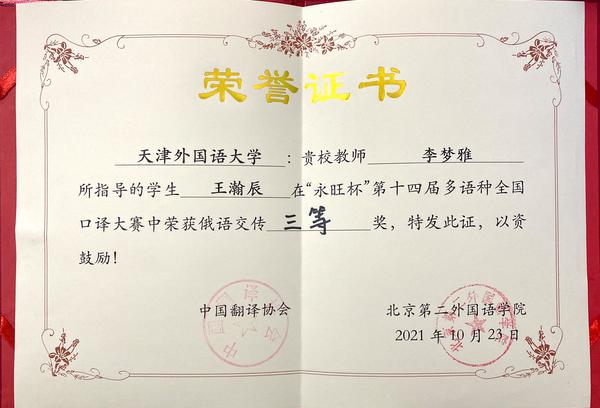 荣誉证书
天津外国语大学：贵校教师 李梦雅
所指导的学生 王瀚辰 在“永旺杯”第十四届多语种全国
口译大赛中荣获俄语交传 三等 奖，特发此证，以资
鼓励！
中国翻译协会 北京第二外国语学院
2021年10月23日